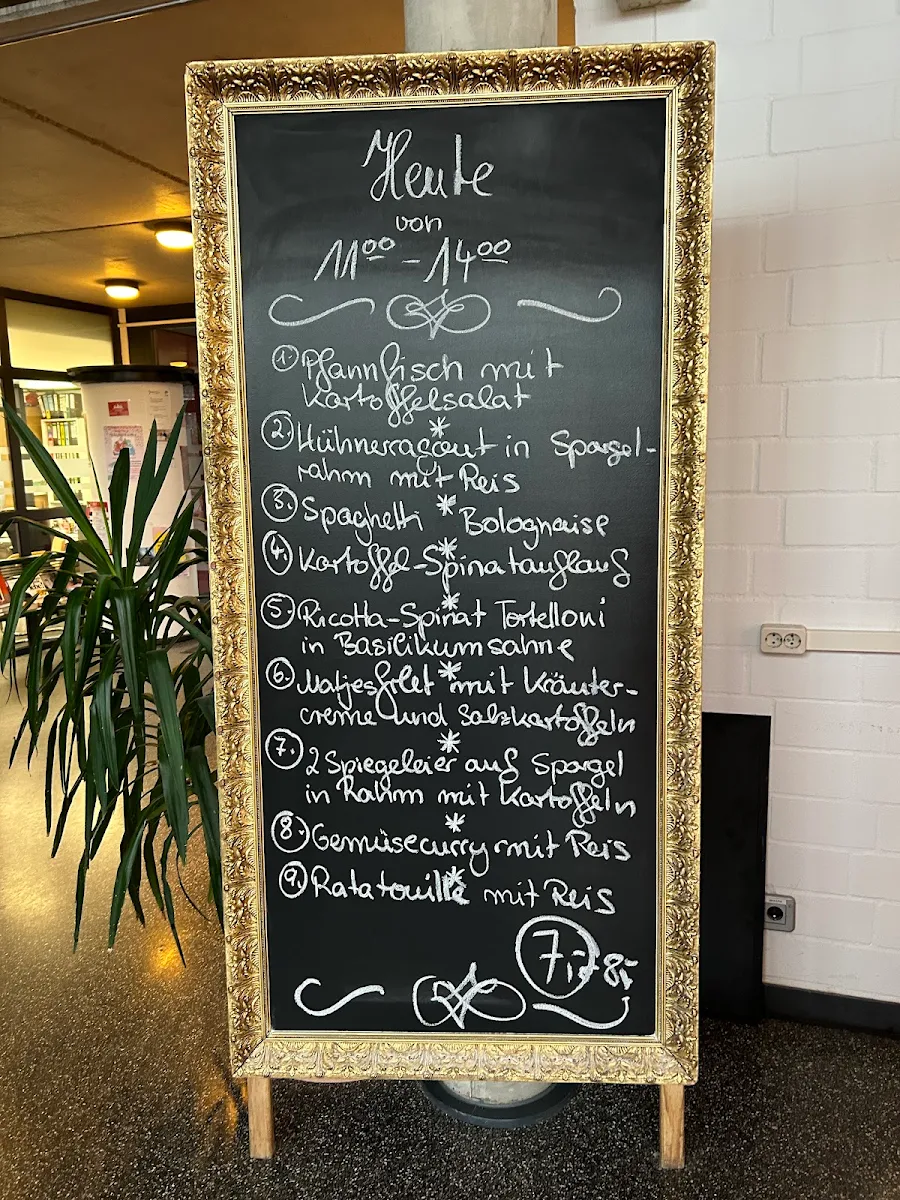 Heute
von
11⁰⁰ - 14⁰⁰
1. Pfannfisch mit
Kartoffelsalat
*
2. Hühnerragout in Spargel-
rahm mit Reis
*
3. Spaghetti Bolognaise
*
4. Kartoffel-Spinatauflauf
*
5. Ricotta-Spinat Tortelloni
in Basilikumsahne
*
6. Matjesfilet mit Kräuter-
creme und Salzkartoffeln
*
7. 2 Spiegeleier auf Spargel
in Rahm mit Kartoffeln
*
8. Gemüsecurry mit Reis
*
9. Ratatouille mit Reis
7,- 8,-